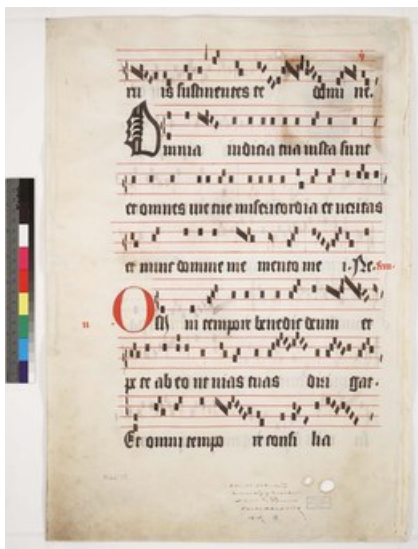 ru is sustinentes te domi ne.
Omnia iudicia tua iusta sunt
et omnes vie tue misericordia et veritas
et nunc domine me mento me i. Ne
O tempore benedic deum et
pe te ab eo ut vias tuas diri gat.
Et omni tempo re consi lia